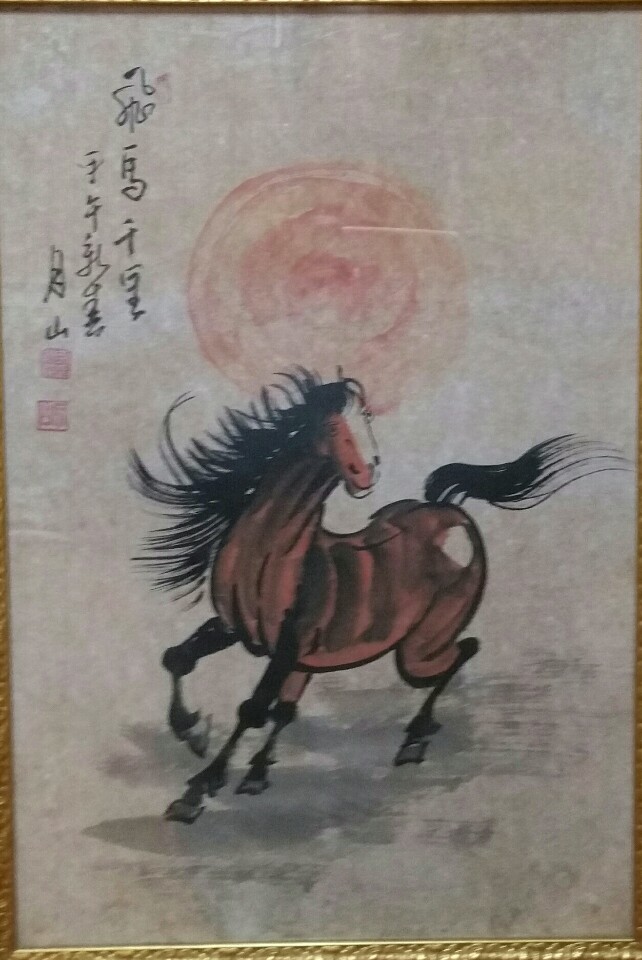 飛馬千里
壬午新春
山